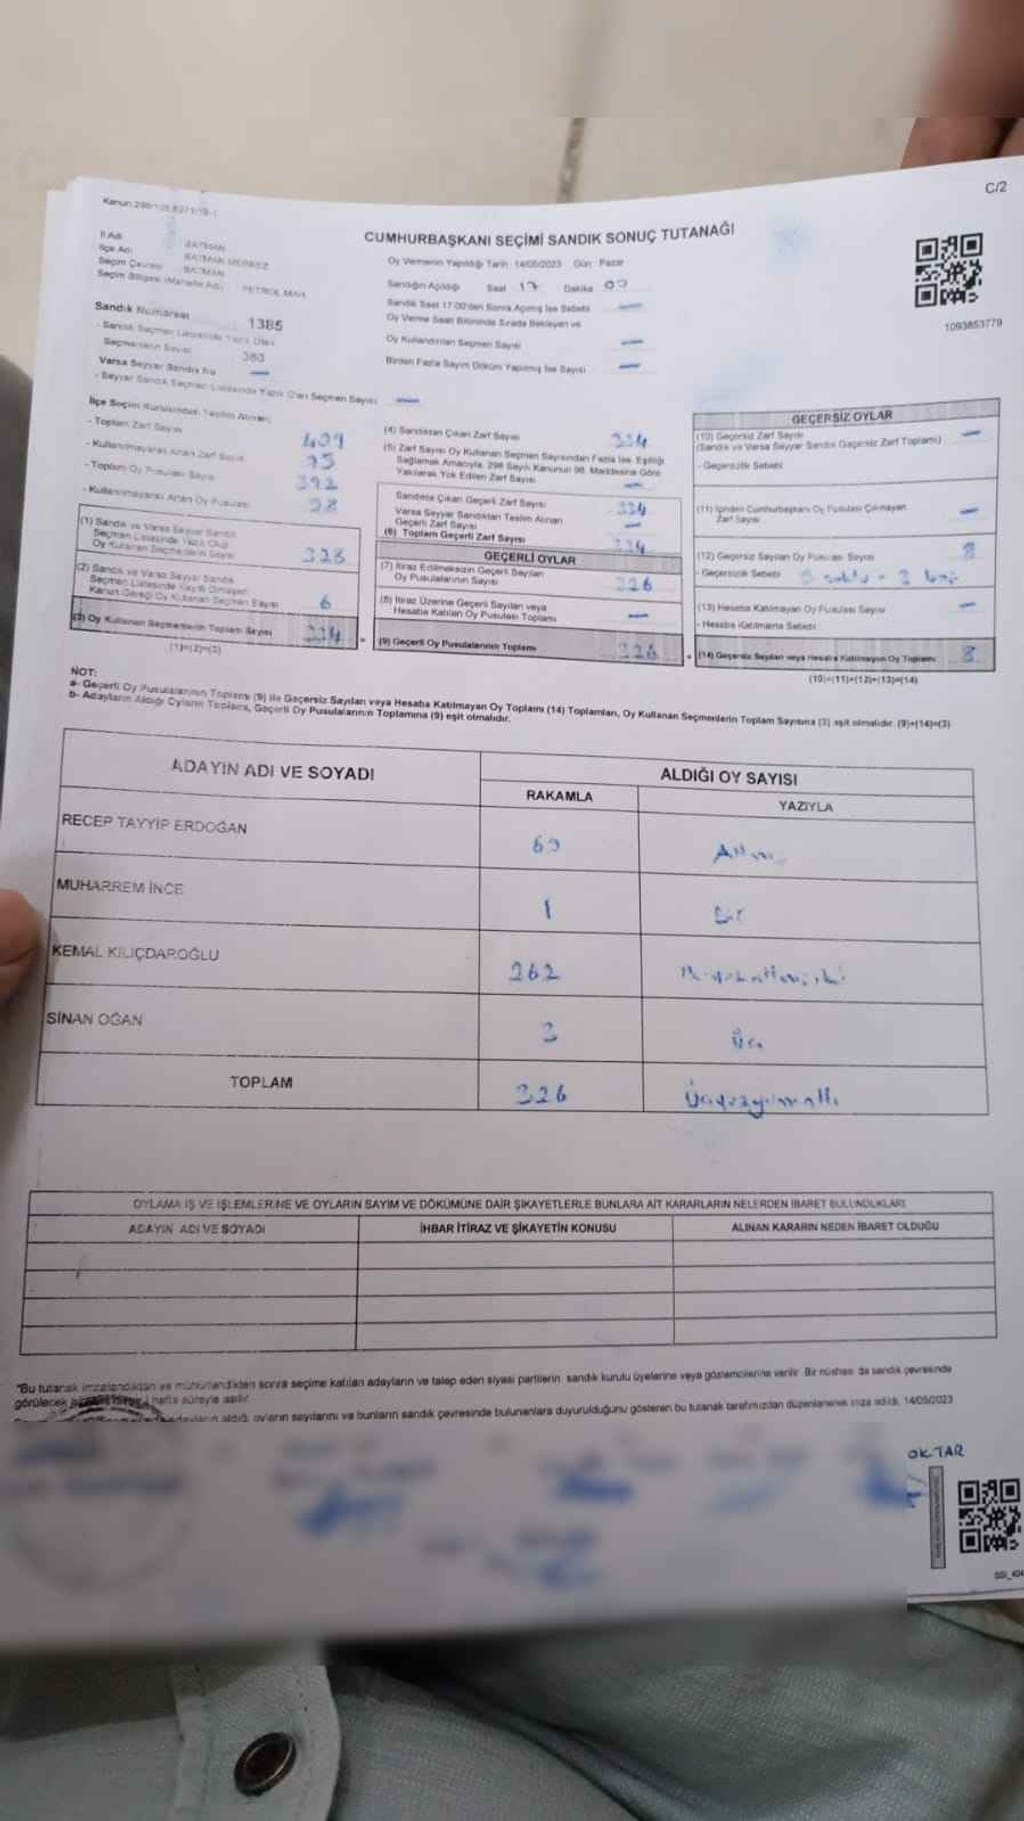 C/2
CUMHURBAŞKANI SEÇİMİ SANDIK SONUÇ TUTANAĞI
İl Adı BATMAN
İlçe Adı BATMAN MERKEZ
Seçim Çevresi BATMAN
Oy Vermenin Yapıldığı Tarih 14/05/2023 Gün: Pazar
Sandığın Açıldığı Saat 17 Dakika
1093853779
Sandık Saat 17.00'den Sonra Açılmış İse Sebebi
Oy Verme Saati Bitiminde Sırada Bekleyen ve
Oy Kullandırılan Seçmen Sayısı
Birden Fazla Sayım Döküm Yapılmış İse Sayısı
Sandık Numarası 1385
Seçmenlerin Sayısı 380
Varsa Seyyar Sandık No
- Seyyar Sandık Seçmen Listesinde Yazılı Olan Seçmen Sayısı
İlçe Seçim Kurulundan Teslim Alınan
- Toplam Zarf Sayısı 409
- Kullanılmayarak Artan Zarf Sayısı 75
- Toplam Oy Pusulası Sayısı 392
- Kullanılmayarak Artan Oy Pusulası
(1) Sandık ve Varsa Seyyar Sandık
Seçmen Listesinde Yazılı Olup
Oy Kullanan Seçmenlerin Sayısı 328
(2) Sandık ve Varsa Seyyar Sandık
Seçmen Listesinde Kayıtlı Olmayan
Kanun Gereği Oy Kullanan Seçmen Sayısı 6
(3) Oy Kullanan Seçmenlerin Toplam Sayısı 334
(1)+(2)=(3)
(4) Sandıktan Çıkan Zarf Sayısı 334
(5) Zarf Sayısı Oy Kullanan Seçmen Sayısından Fazla İse, Eşitliği
Sağlamak Amacıyla, 298 Sayılı Kanunun 98. Maddesine Göre
Yakılarak Yok Edilen Zarf Sayısı
Sandıkta Çıkan Geçerli Zarf Sayısı 334
Varsa Seyyar Sandıktan Teslim Alınan
Geçerli Zarf Sayısı
(6) Toplam Geçerli Zarf Sayısı 334
GEÇERLİ OYLAR
(7) İtiraz Edilmeksizin Geçerli Sayılan
Oy Pusulalarının Sayısı 326
(8) İtiraz Üzerine Geçerli Sayılan veya
Hesaba Katılan Oy Pusulası Toplamı
(9) Geçerli Oy Pusulalarının Toplamı 326
GEÇERSİZ OYLAR
(10) Geçersiz Zarf Sayısı
(Sandık ve Varsa Seyyar Sandık Geçersiz Zarf Toplamı)
- Geçersizlik Sebebi
(11) İçinden Cumhurbaşkanı Oy Pusulası Çıkmayan
Zarf Sayısı
(12) Geçersiz Sayılan Oy Pusulası Sayısı 8
- Geçersizlik Sebebi
(13) Hesaba Katılmayan Oy Pusulası Sayısı
- Hesaba Katılmama Sebebi
(14) Geçersiz Sayılan veya Hesaba Katılmayan Oy Toplamı 8
(10)+(11)+(12)+(13)=(14)
NOT:
a- Geçerli Oy Pusulalarının Toplamı (9) ile Geçersiz Sayılan veya Hesaba Katılmayan Oy Toplamı (14) Toplamları, Oy Kullanan Seçmenlerin Toplam Sayısına (3) eşit olmalıdır. (9)+(14)=(3)
b- Adayların Aldığı Oyların Toplamı, Geçerli Oy Pusulalarının Toplamına (9) eşit olmalıdır.
ADAYIN ADI VE SOYADI ALDIĞI OY SAYISI
RAKAMLA YAZIYLA
RECEP TAYYİP ERDOĞAN 60 Altmış
MUHARREM İNCE 1 Bir
KEMAL KILIÇDAROĞLU 262 İkiyüzaltmışiki
SİNAN OĞAN 3 Üç
TOPLAM 326 Üçyüzyirmialtı
OYLAMA İŞ VE İŞLEMLERİNE VE OYLARIN SAYIM VE DÖKÜMÜNE DAİR ŞİKAYETLERLE BUNLARA AİT KARARLARIN NELERDEN İBARET BULUNDUKLARI
ADAYIN ADI VE SOYADI İHBAR İTİRAZ VE ŞİKAYETİN KONUSU ALINAN KARARIN NEDEN İBARET OLDUĞU
*Bu tutanak imzalandıktan ve mühürlendikten sonra seçime katılan adayların ve talep eden siyasi partilerin sandık kurulu üyelerine veya gözlemcilerine verilir. Bir nüshası da sandık çevresinde
görülecek hafta süreyle asılır.
aldığı oyların sayılarını ve bunların sandık çevresinde bulunanlara duyurulduğunu gösteren bu tutanak tarafımızdan düzenlenerek imza edildi. 14/05/2023
OKTAR